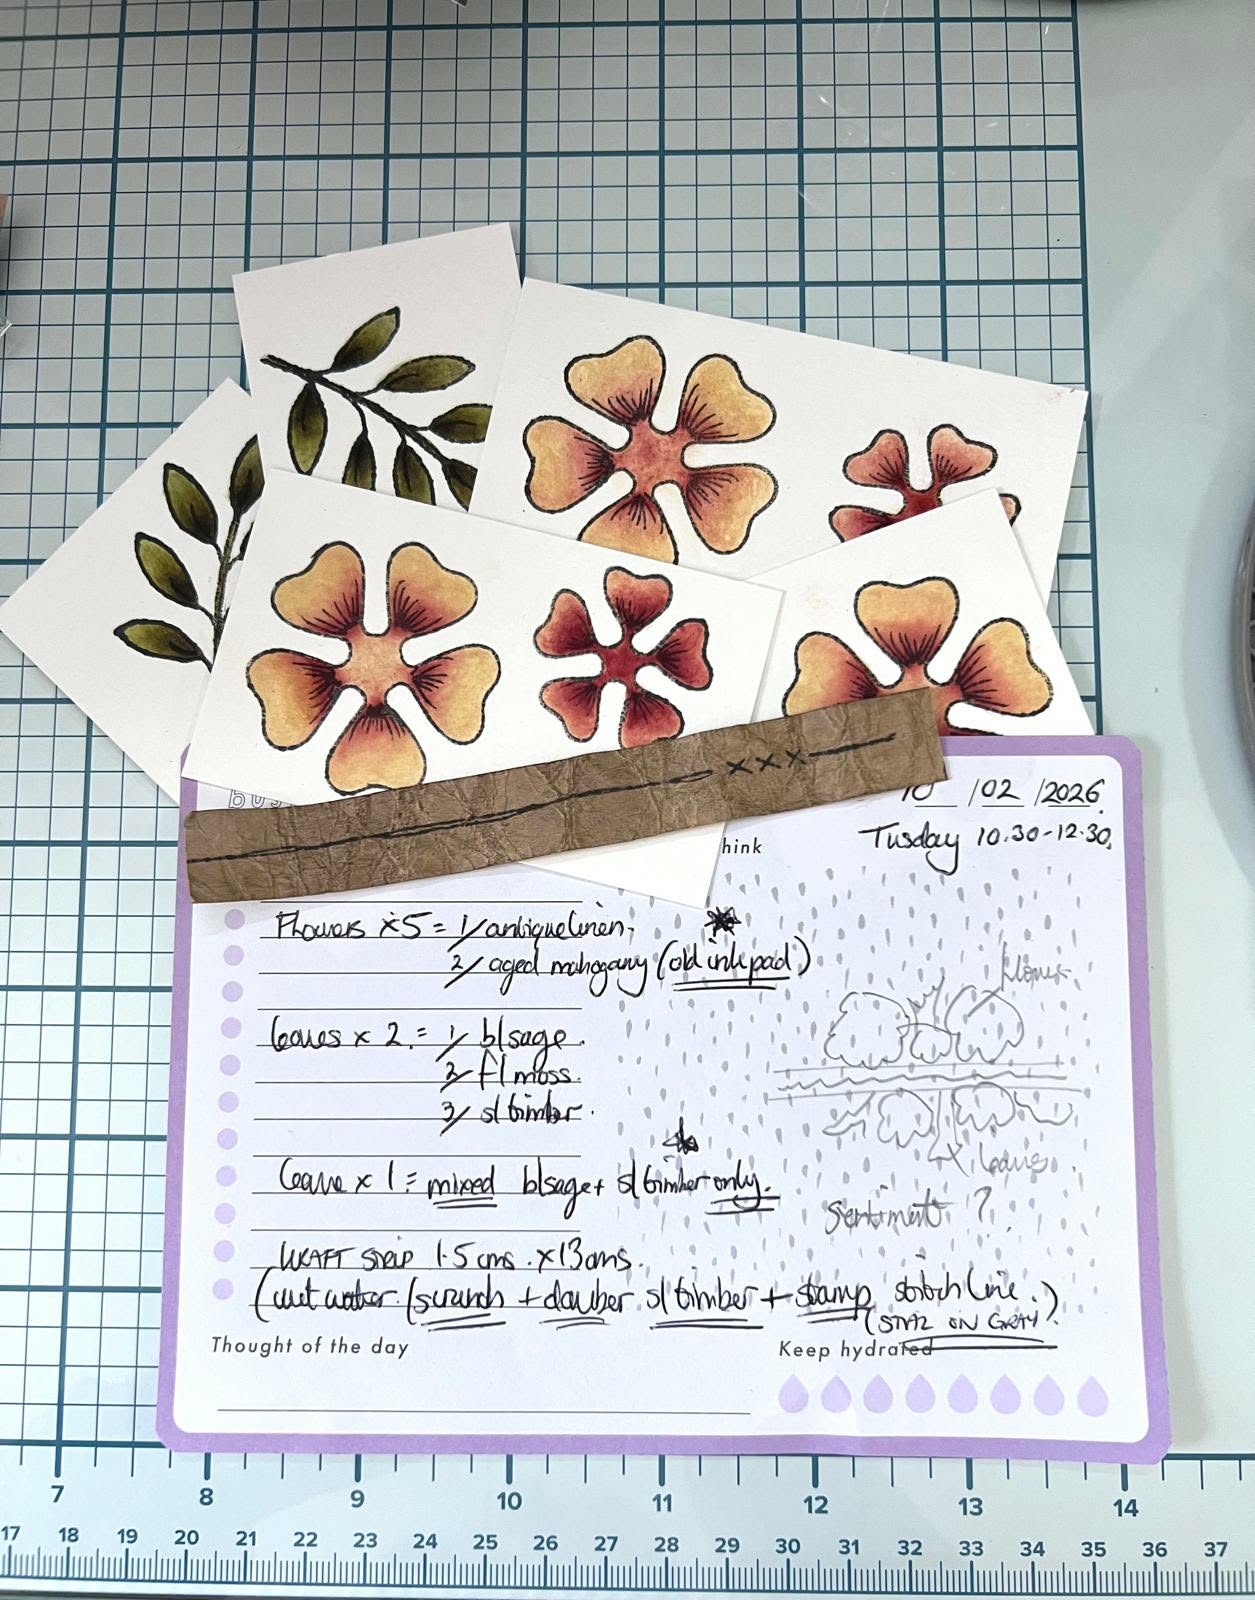 10 /02 /2026
hink
Tusday 10.30-12.30.
Flowers x5 = 1/ antique linen.
2/ aged mahogany (old ink pad)
leaves x 2. = 1/ b/sage.
2/ f/ moss.
3/ s/ timber.
leave x 1 = mixed b/sage + s/ timber only.
flower
4x leaves.
Sentiment ?
KRAFT STRIP 1.5 cms. x 13 cms.
(wet water. / scrunch + dauber s/ timber + stamp stitch line.)
(STAZ ON GRAY)
Thought of the day
Keep hydrated
7 8 9 10 11 12 13 14
17 18 19 20 21 22 23 24 25 26 27 28 29 30 31 32 33 34 35 36 37